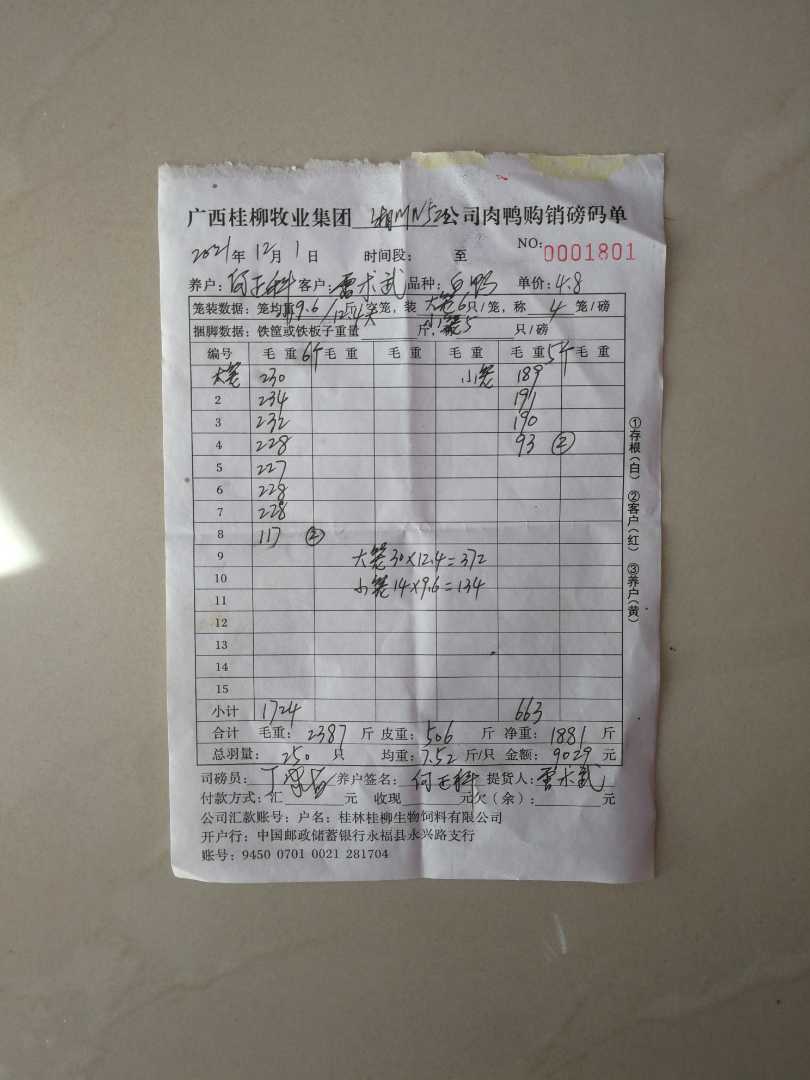 广西桂柳牧业集团 公司肉鸭购销磅码单
2021年12月1日 时间段： 至 NO:0001801
养户：何正科 客户：雷术武 品种：白鸭 单价：4.8
笼装数据：笼均重9.6/12.4斤/空笼，装大笼6只/笼，称4笼/磅
捆脚数据：铁筐或铁板子重量 斤， 小笼5 只/磅
编号 毛重 6个 毛重 毛重 毛重 毛重 5个 毛重
大笼 230 小笼 189
2 234 191
3 232 190
4 228 93 ②
5 227
6 228
7 228
8 117 ②
9 大笼30×12.4=372
10 小笼14×9.6=134
11
12
13
14
15
小计 1724 663
合计 毛重：2387 斤 皮重：506 斤 净重：1881 斤
总羽量：250 只 均重：7.52 斤/只 金额：9029 元
司磅员： 养户签名：何正科 提货人：雷术武
付款方式：汇 元 收现 元欠（余）： 元
公司汇款账号：户名：桂林桂柳生物饲料有限公司
开户行：中国邮政储蓄银行永福县永兴路支行
账号：9450 0701 0021 281704
①存根（白） ②客户（红） ③养户（黄）